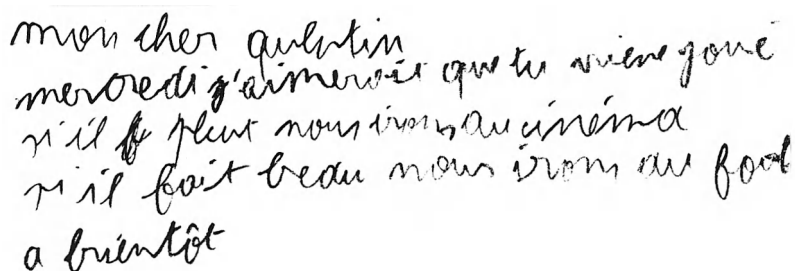 mon cher quentin
mercredi j'aimerais que tu viene joué
si il pleut nous irons au cinéma
si il fait beau nous irons au foot
a bientôt